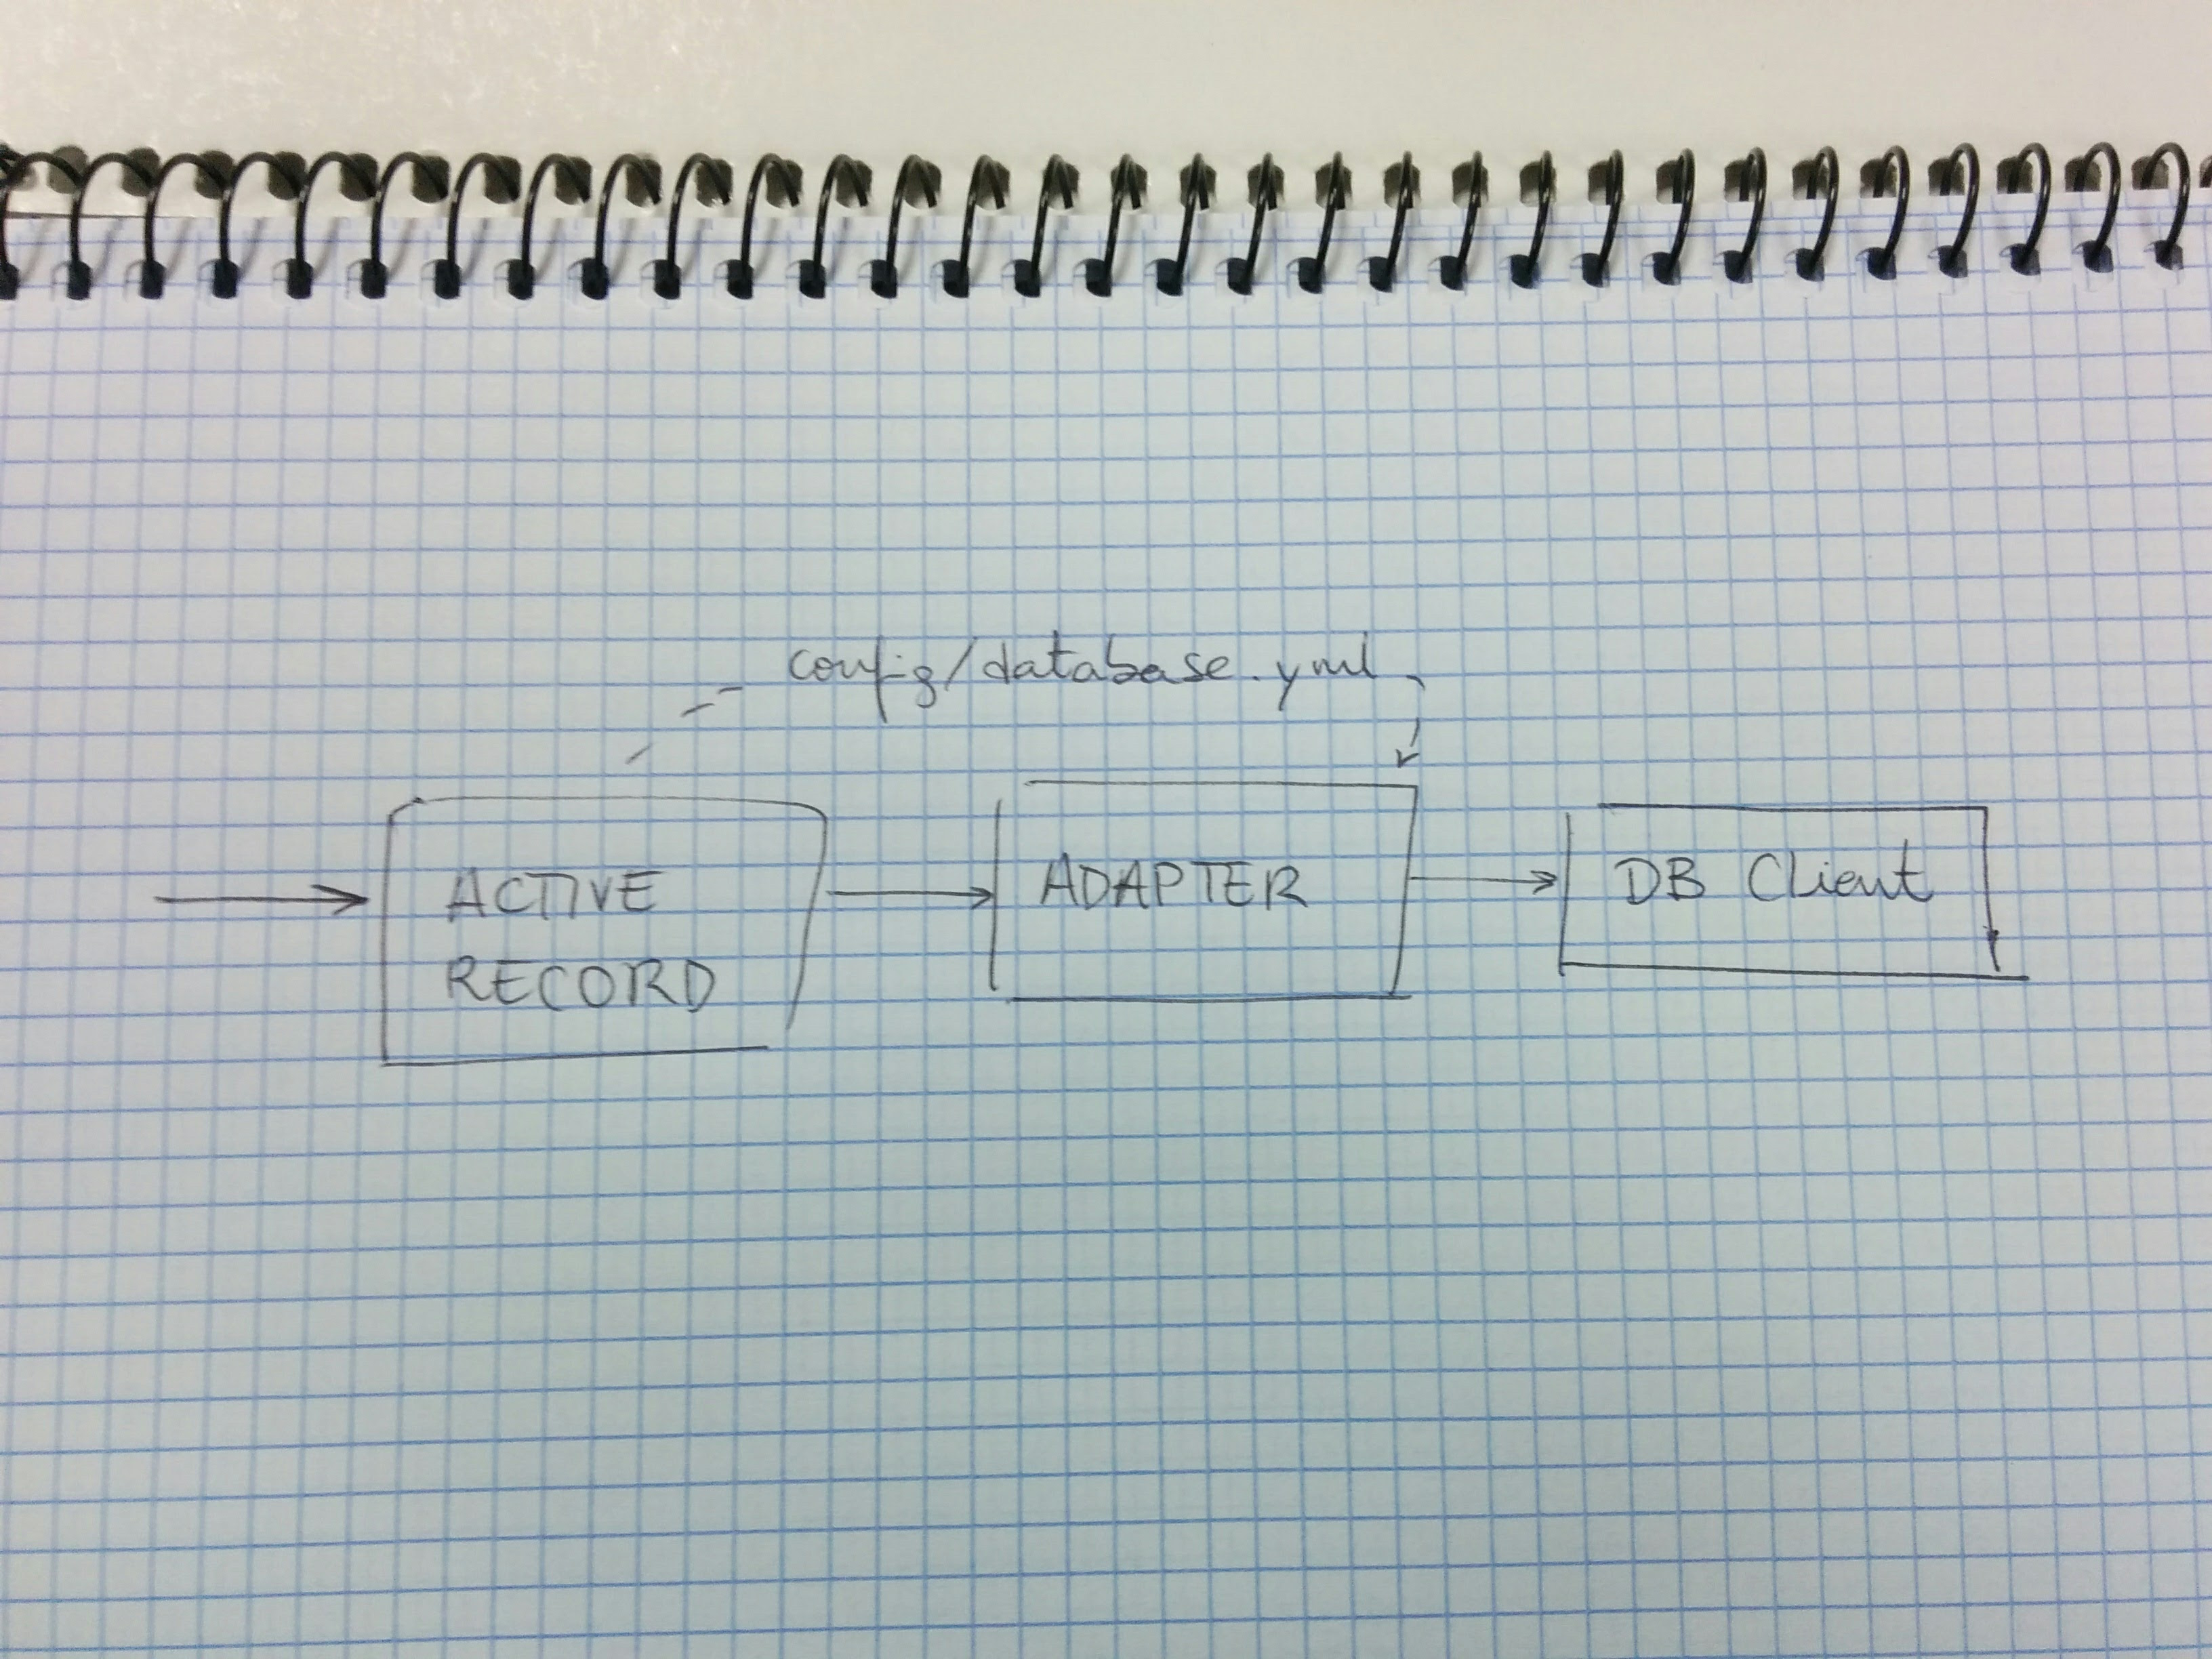 config/database.yml
ACTIVE
RECORD
ADAPTER
DB Client